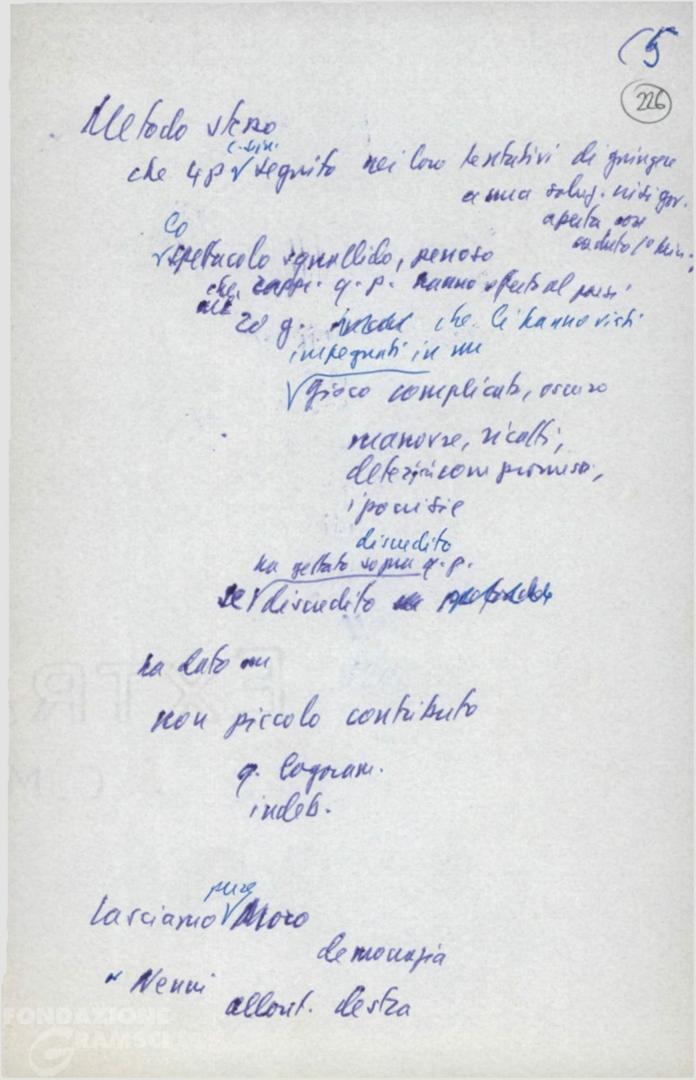 (5
226
Metodo stesso
c-sin.
che 4 p seguito nei loro tentativi di giungere
a una soluz. crisi gov.
aperta con
caduta 1°
Lo
spettacolo squallido, penoso
che q. p. hanno offerto al paese
20 g. che li hanno visti
impegnati in un
gioco complicato, oscuro
manovre, ricatti,
deteriori compromessi,
ipocrisie
discredito
ha gettato sopra q. p.
discredito
ha dato un
non piccolo contributo
q. logoram.
indeb.
pure
Lasciamo Moro
democrazia
" Nenni
allont. destra
FONDAZIONE
GRAMSCI